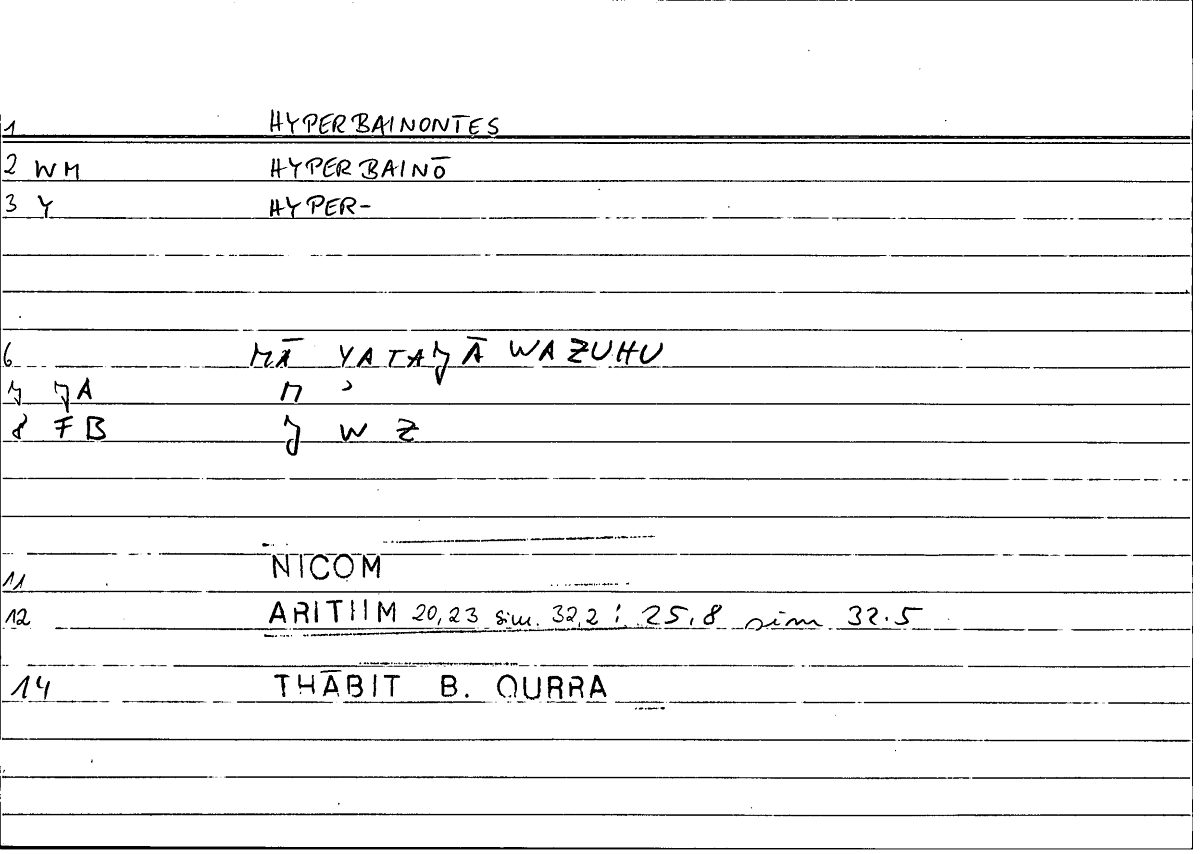 1 HYPERBAINONTES
2 WM HYPERBAINŌ
3 Y HYPER-
6 MĀ YATAJĀWAZUHU
7 JA M ʾ
8 FB J W Z
11 NICOM
12 ARITHM 20,23 sim. 32,2 ; 25,8 sim 32.5
14 THĀBIT B. QURRA